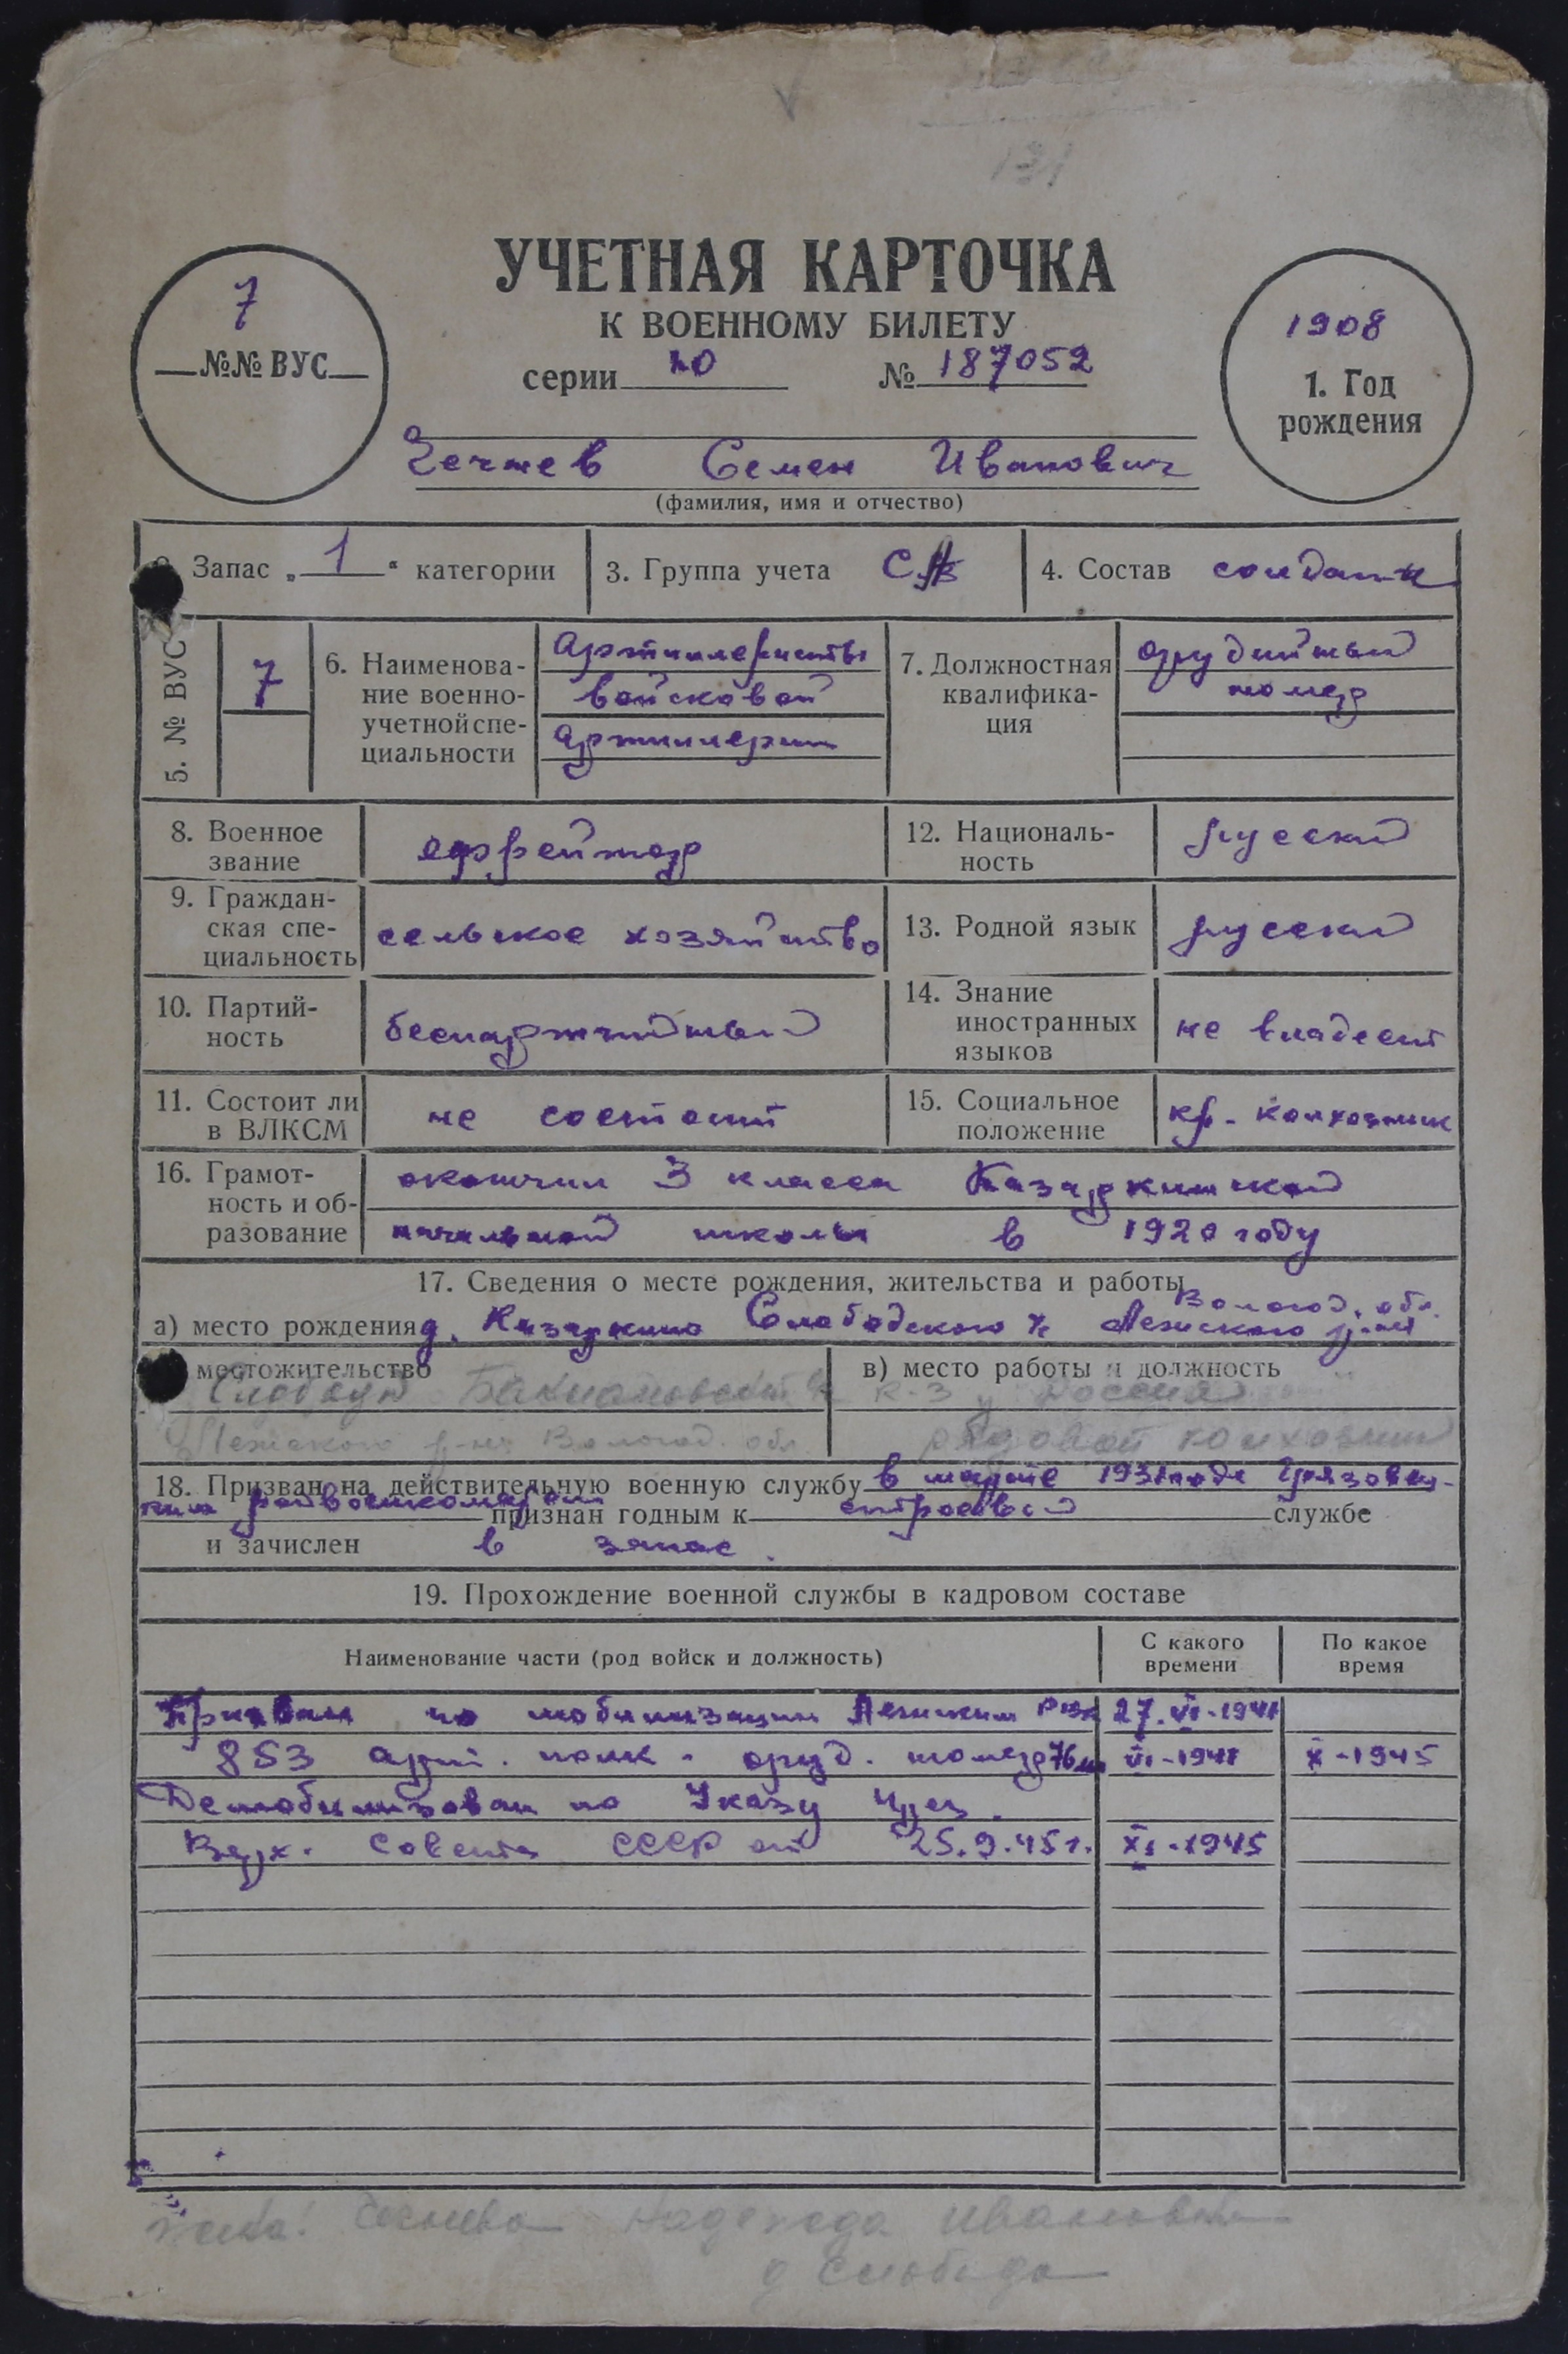 УЧЕТНАЯ КАРТОЧКА
К ВОЕННОМУ БИЛЕТУ
серии № 187052
7
№№ ВУС
1908
1. Год
рождения
Семен Иванович
(фамилия, имя и отчество)
Запас „ 1 “ категории
3. Группа учета
4. Состав солдаты
5. № ВУС 7
6. Наименова-
ние военно-
учетной спе-
циальности
Артиллеристы
войсковой
артиллерии
7. Должностная
квалифика-
ция
орудийный
номер
8. Военное
звание
ефрейтор
12. Националь-
ность
русский
9. Граждан-
ская спе-
циальность
сельское хозяйство
13. Родной язык русский
10. Партий-
ность
беспартийный
14. Знание
иностранных
языков
не владеет
11. Состоит ли
в ВЛКСМ
не состоит
15. Социальное
положение
кр. колхозник
16. Грамот-
ность и об-
разование
окончил 3 класса Казаркинской
начальной школы в 1920 году
17. Сведения о месте рождения, жительства и работы
Вологод. обл.
а) место рождения д. Казаркино Слободского Лежского р-на
местожительство
Лежского р-на Вологод. обл.
в) место работы и должность
к-з Россия
рядовой колхозник
18. Призван на действительную военную службу в марте Грязовец-
ким райвоенкоматом признан годным к строевой службе
и зачислен в запас.
19. Прохождение военной службы в кадровом составе
Наименование части (род войск и должность)
С какого
времени
По какое
время
Призван по мобилизации Лежским РВК 27.VI-1941
853 арт. полк - оруд. номер 76 мм VI-1941 X-1945
Демобилизован по Указу През.
Верх. Совета СССР от 25.9.45 г. XI-1945
жена: Надежда Ивановна
д Слобода